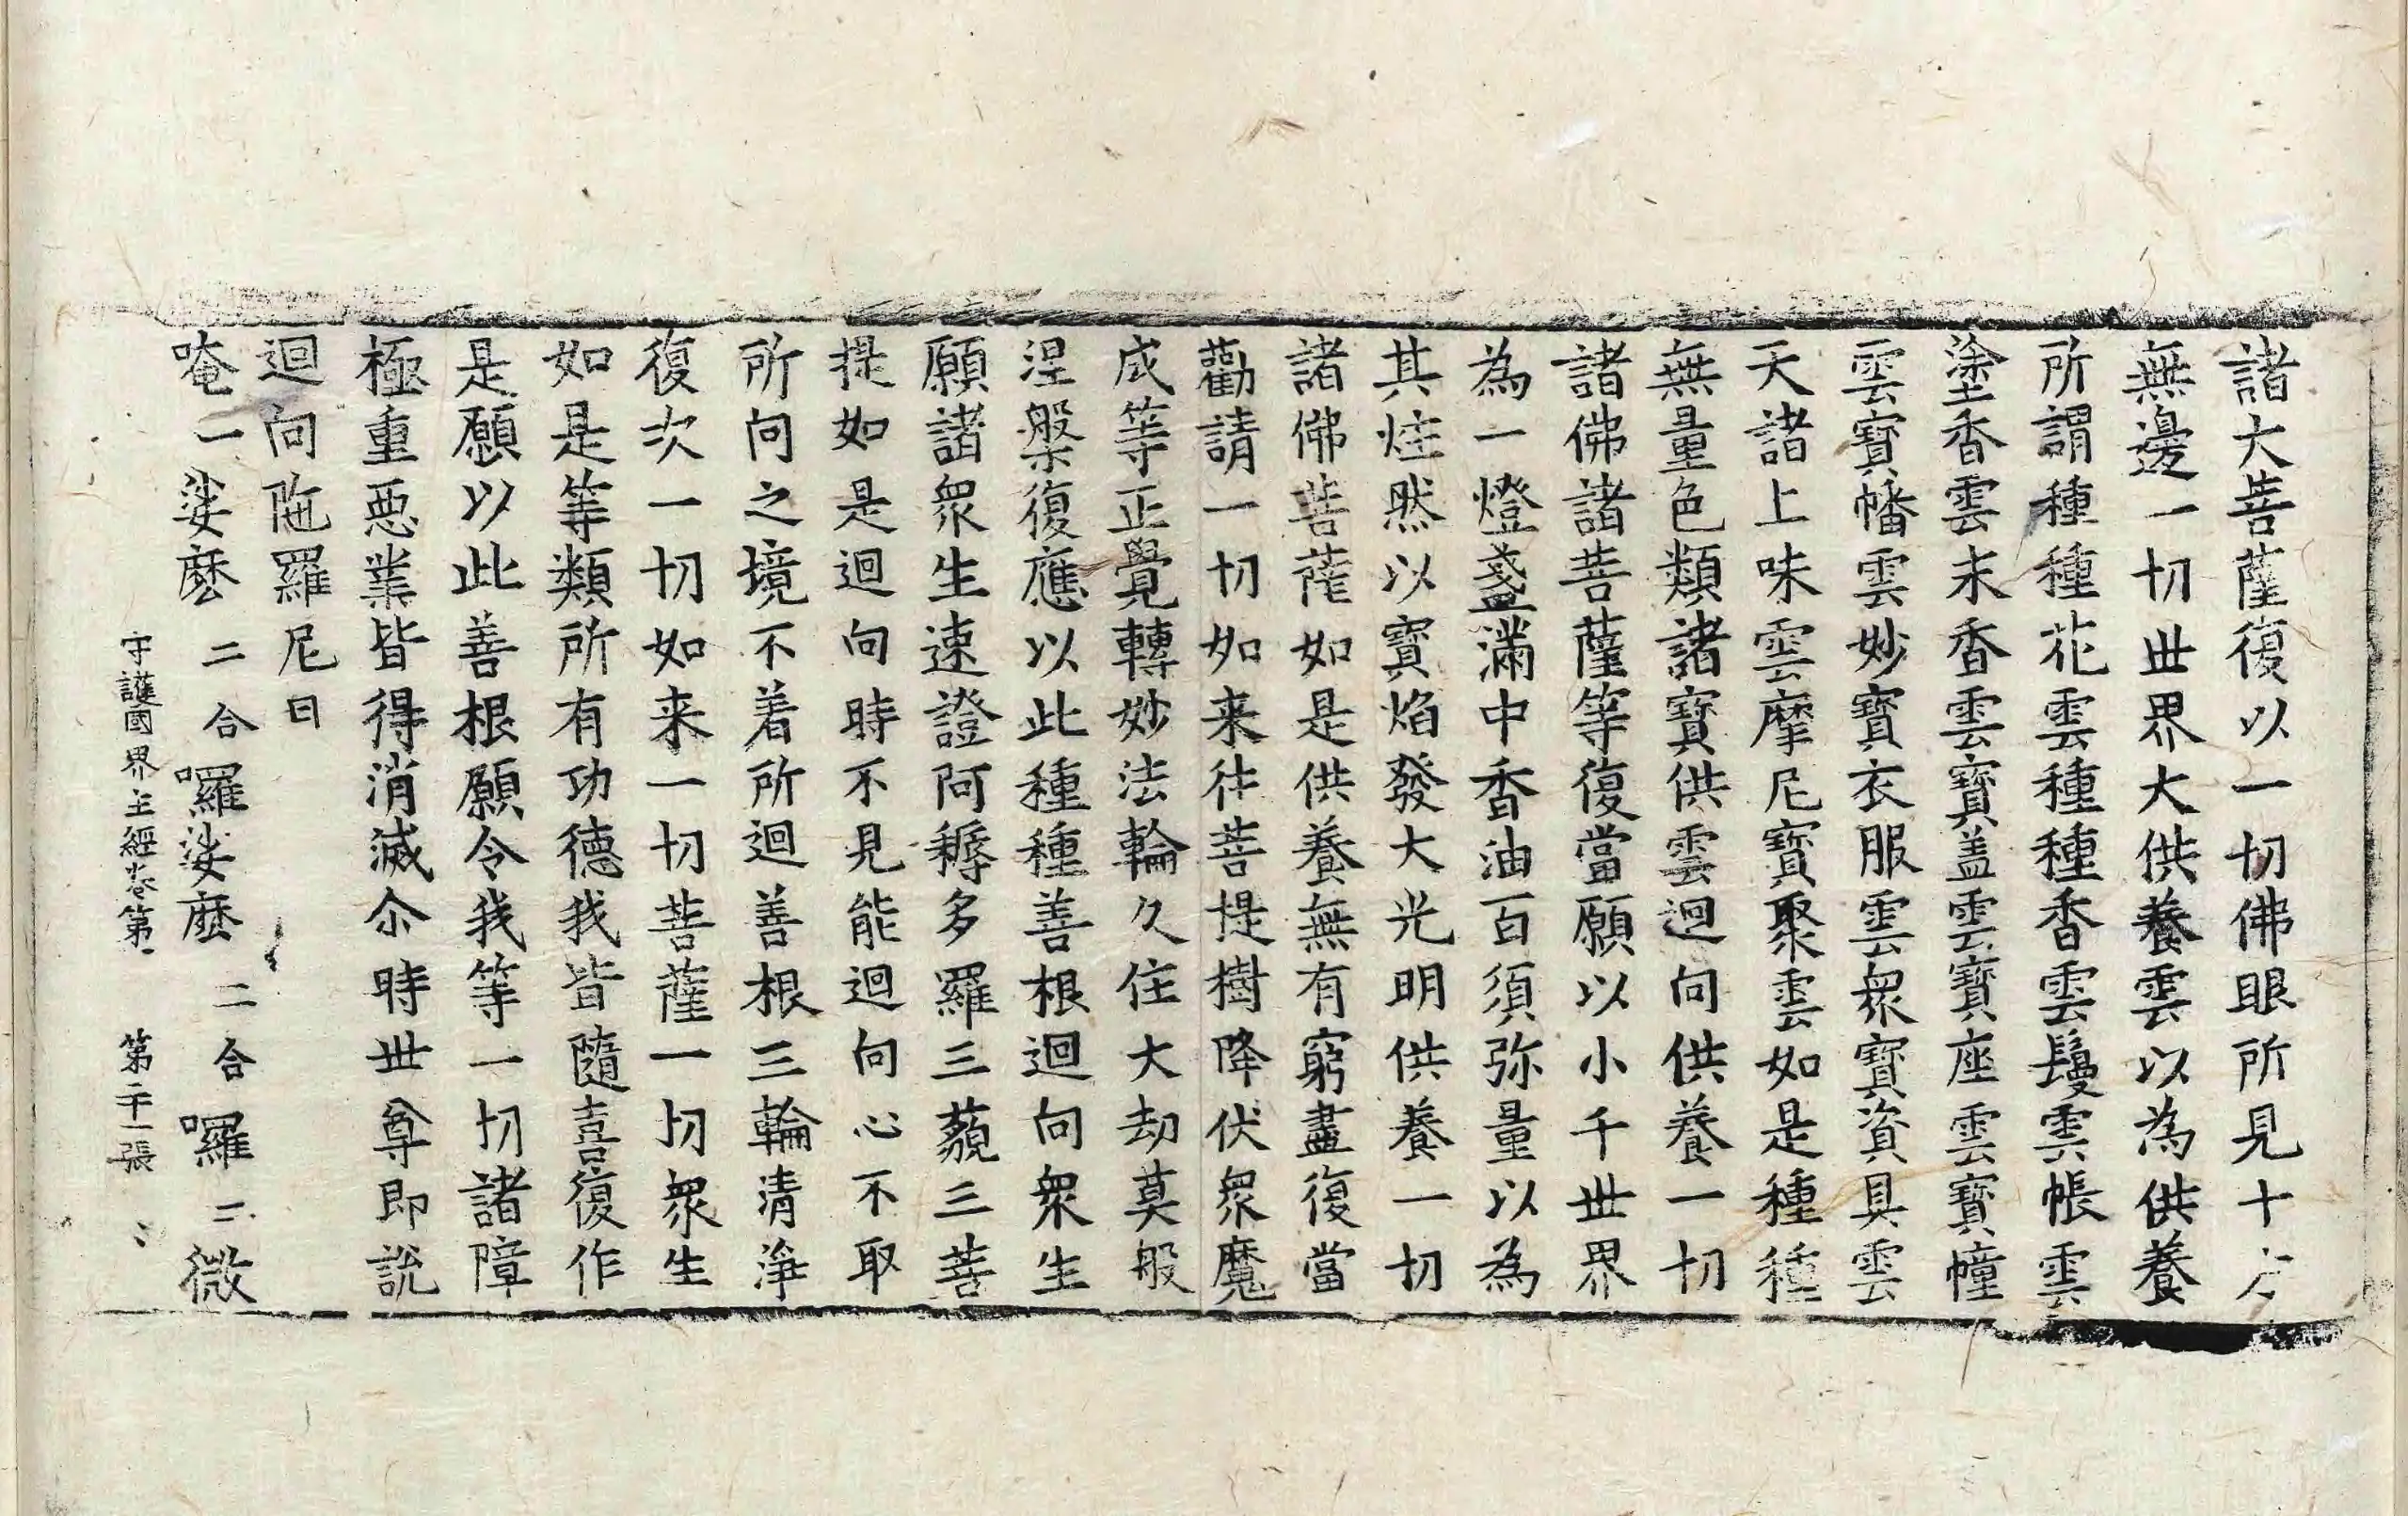 諸大菩薩復以一切佛眼所見十方
無邊一切世界大供養雲以為供養
所謂種種花雲種種香雲鬘雲帳雲
塗香雲末香雲寶盖雲寶座雲寶幢
雲寶幡雲妙寶衣服雲衆寶資具雲
天諸上味雲摩尼寶聚雲如是種種
無量色類諸寶供雲迴向供養一切
諸佛諸菩薩等復當願以小千世界
為一燈盞滿中香油百須弥量以為
其炷然以寶焰發大光明供養一切
諸佛菩薩如是供養無有窮盡復當
勸請一切如来往菩提樹降伏衆魔
成等正覺轉妙法輪久住大劫莫般
涅槃復應以此種種善根迴向衆生
願諸衆生速證阿耨多羅三藐三菩
提如是迴向時不見能迴向心不取
所向之境不着所迴善根三輪清淨
復次一切如来一切菩薩一切衆生
如是等類所有功德我皆隨喜復作
是願以此善根願令我等一切諸障
極重惡業皆得消滅尒時世尊即說
迴向陁羅尼曰
唵一娑麼二合囉娑麼二合囉二微
守護國界主經卷第一 第二十一張